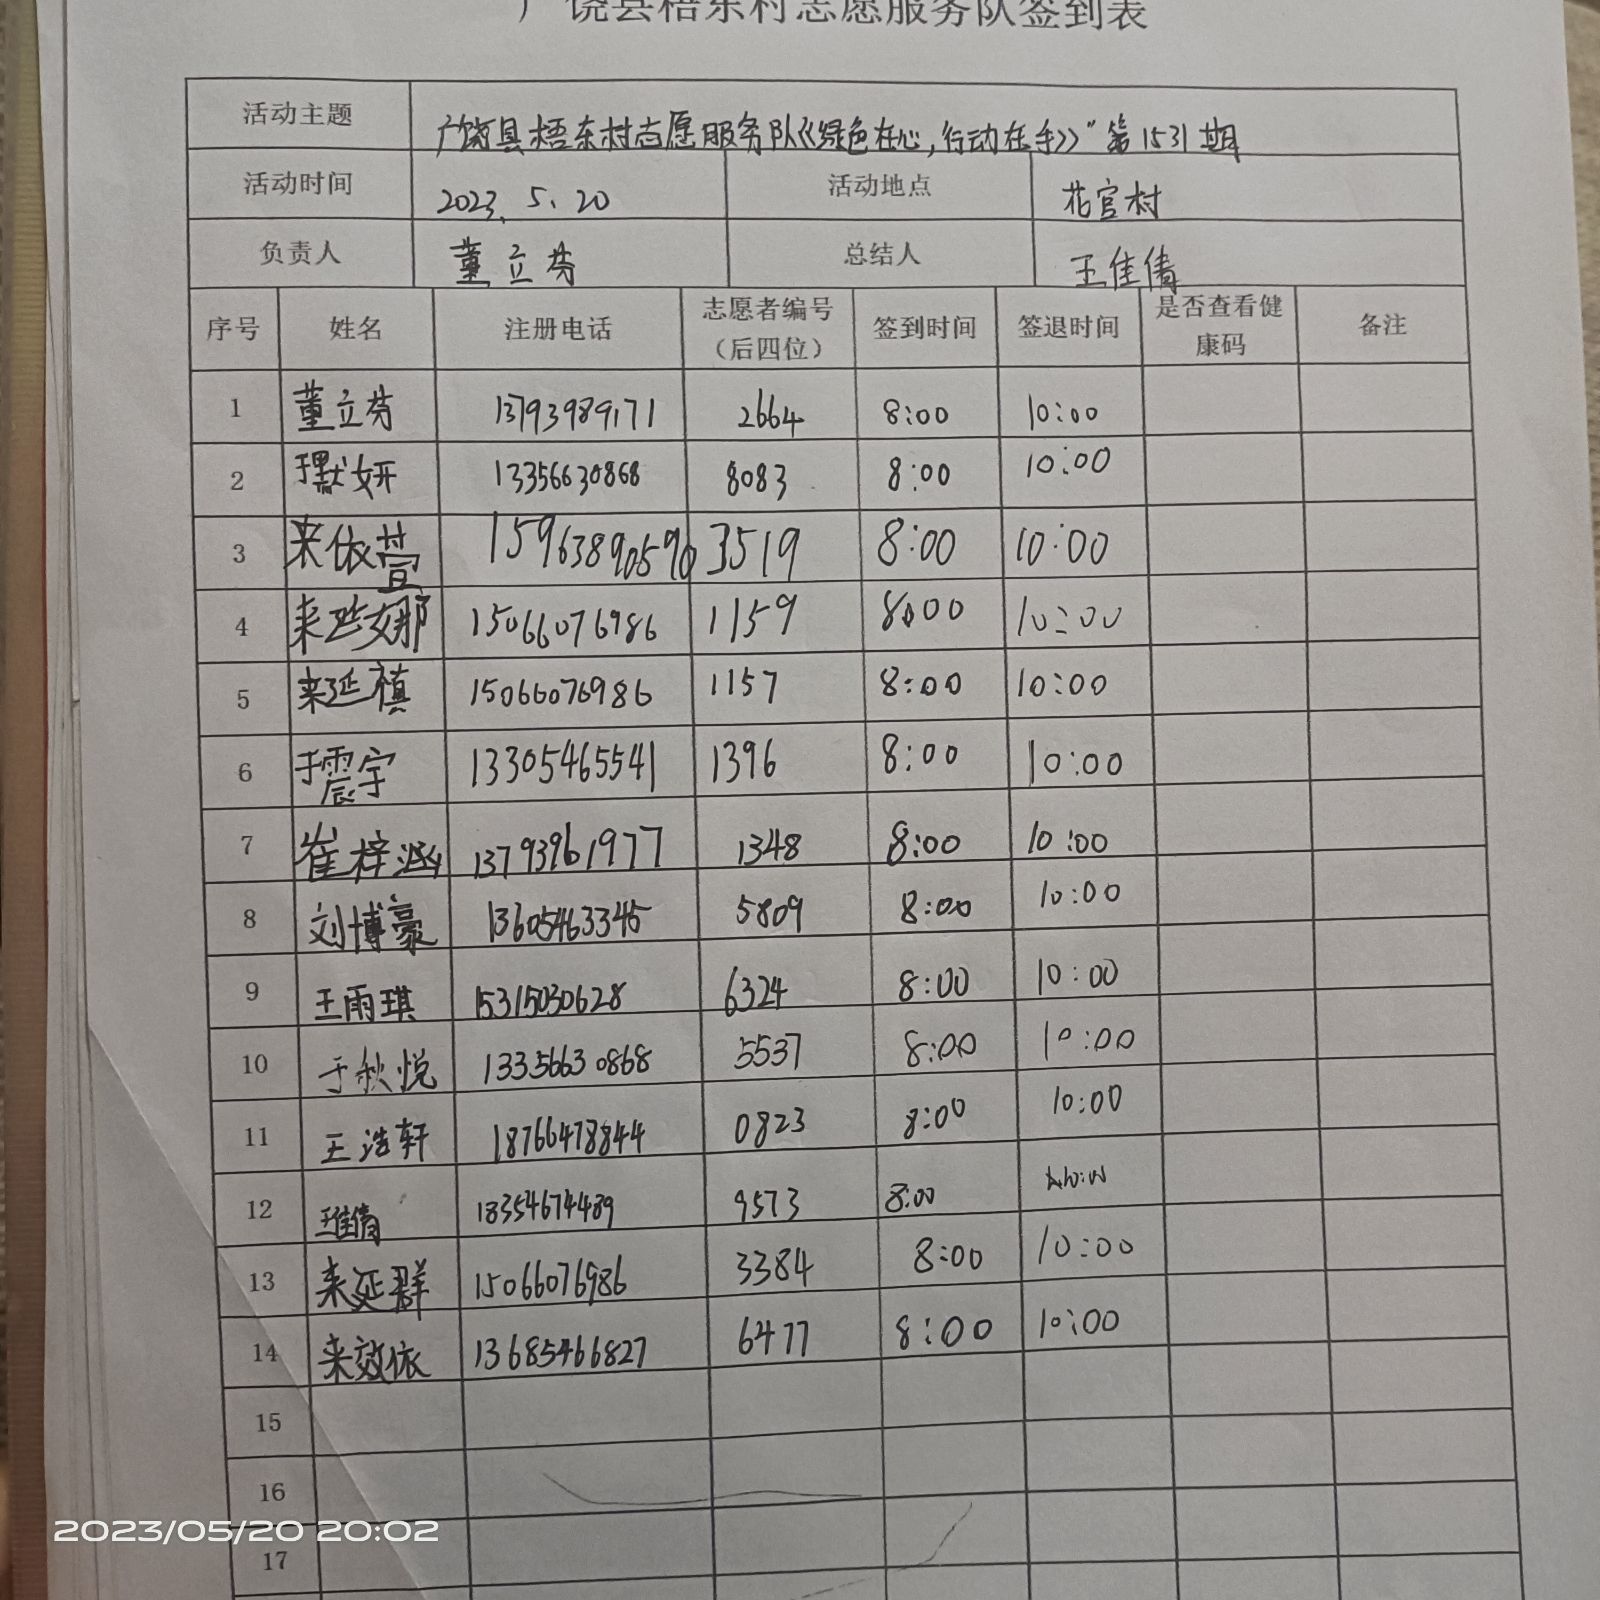 广饶县梧东村志愿服务队签到表
活动主题 广饶县梧东村志愿服务队《绿色在心,行动在手》"第1531期
活动时间 2023.5.20 活动地点 花官村
负责人 董立芬 总结人 王佳倩
序号 姓名 注册电话 志愿者编号（后四位） 签到时间 签退时间 是否查看健康码 备注
1 董立芬 13793989171 2664 8:00 10:00
2 于默妍 13356630868 8083 8:00 10:00
3 来依萱 15963890590 3519 8:00 10:00
4 来 娜 15066076986 1159 8:00 10:00
5 来延禛 15066076986 1157 8:00 10:00
6 于震宇 13305465541 1396 8:00 10:00
7 崔梓涵 13793961977 1348 8:00 10:00
8 刘博豪 13605463345 5809 8:00 10:00
9 王雨琪 15315030628 6324 8:00 10:00
10 于秋悦 13356630868 5537 8:00 10:00
11 王浩轩 18766478844 0823 8:00 10:00
12 王佳倩 18354674489 9573 8:00
13 来延群 15066076986 3384 8:00 10:00
14 来效依 13685466827 6477 8:00 10:00
15
16
17
2023/05/20 20:02